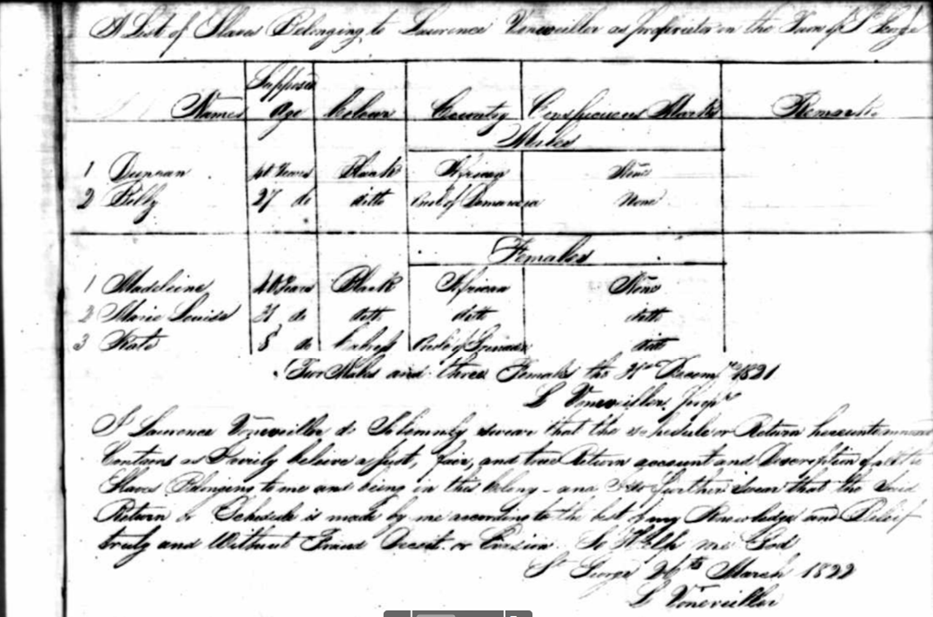 A List of Slaves Belonging to Laurence Voneveiller as proprietor in the Town of St George
Names Supposed Age Colour Country Conspicuous Marks Remarks
Males
1 Deepnan 40 Years Black African None
2 Billy 27 do ditto Creole of Demarara None
Females
1 Madeleine 40 Years Black African None
2 Marie Louise do ditto ditto ditto
3 Kate 8 do Creole of Grenada ditto
Two Males and three Females the 31st Decemr 1821
L Voneveiller Propr
I Laurence Voneveiller do Solemnly swear that the schedule or Return hereunto
Contains as I verily believe a just, fair, and true Return account and Description of all the
Slaves Belonging to me and being in this Colony - and I do further Swear that the said
Return or Schedule is made by me according to the best of my Knowledge and Belief
truly and Without Fraud Deceit or Evasion. So Help me God
St George 26th March 1822
L Voneveiller